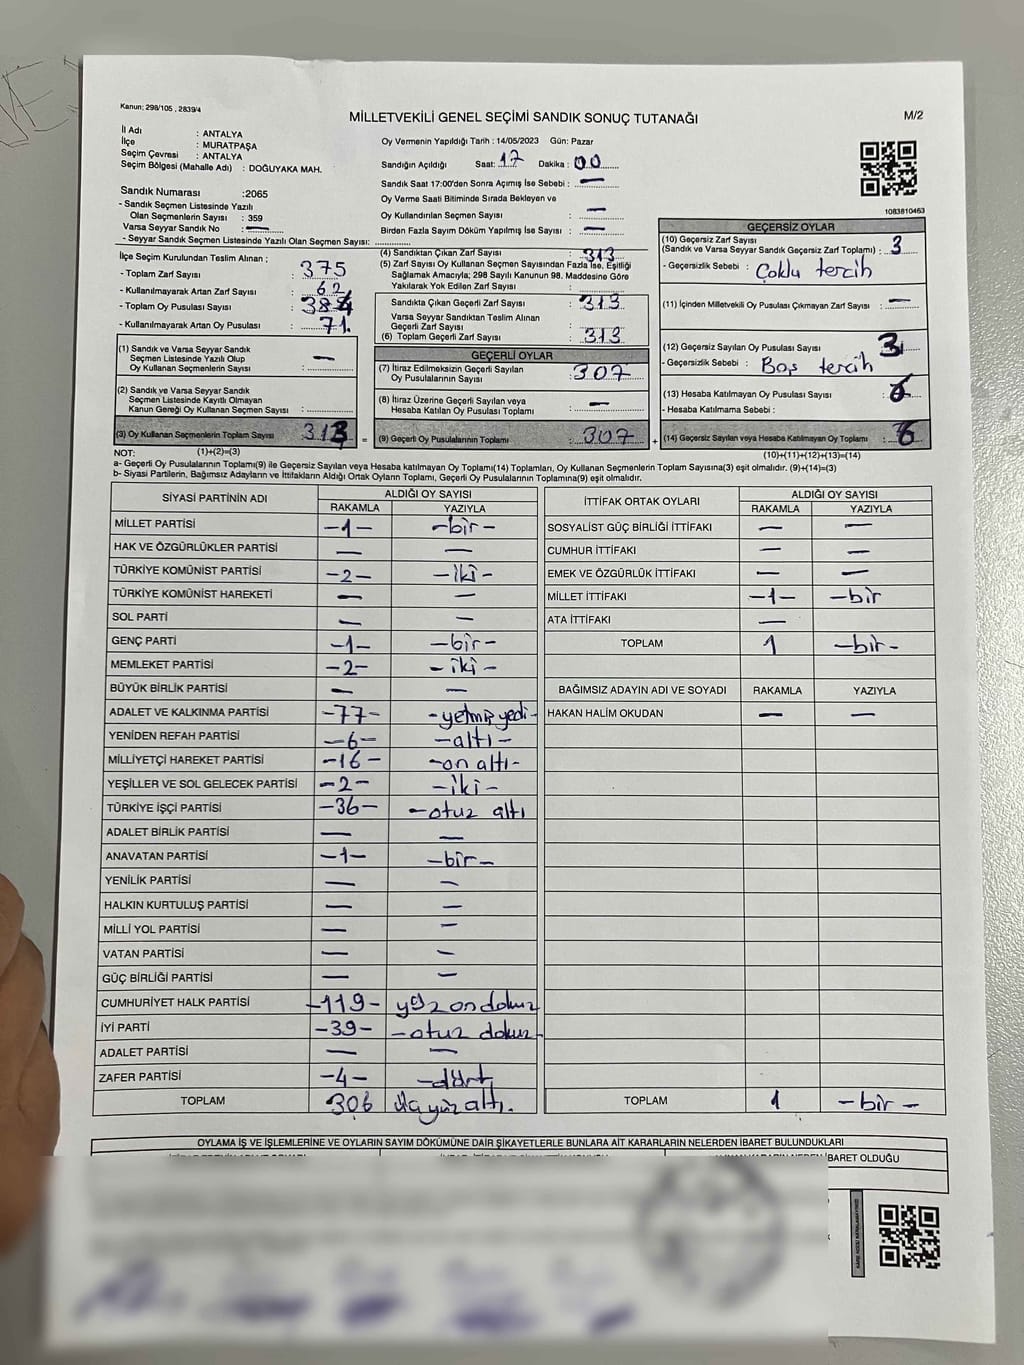 Kanun: 298/105 , 2839/4
MİLLETVEKİLİ GENEL SEÇİMİ SANDIK SONUÇ TUTANAĞI
M/2
İl Adı : ANTALYA
İlçe : MURATPAŞA
Seçim Çevresi : ANTALYA
Seçim Bölgesi (Mahalle Adı) : DOĞUYAKA MAH.
Sandık Numarası :2065
- Sandık Seçmen Listesinde Yazılı
Olan Seçmenlerin Sayısı : 359
Varsa Seyyar Sandık No : —
- Seyyar Sandık Seçmen Listesinde Yazılı Olan Seçmen Sayısı: ..............
Oy Vermenin Yapıldığı Tarih : 14/05/2023 Gün: Pazar
Sandığın Açıldığı Saat: 17 Dakika : 00
Sandık Saat 17:00'den Sonra Açımış İse Sebebi : —
Oy Verme Saati Bitiminde Sırada Bekleyen ve
Oy Kullandırılan Seçmen Sayısı : —
Birden Fazla Sayım Döküm Yapılmış İse Sayısı : —
1083810463
İlçe Seçim Kurulundan Teslim Alınan ;
- Toplam Zarf Sayısı : 375
- Kullanılmayarak Artan Zarf Sayısı : 62
- Toplam Oy Pusulası Sayısı : 384
- Kullanılmayarak Artan Oy Pusulası : 71.
(1) Sandık ve Varsa Seyyar Sandık
Seçmen Listesinde Yazılı Olup
Oy Kullanan Seçmenlerin Sayısı : —
(2) Sandık ve Varsa Seyyar Sandık
Seçmen Listesinde Kayıtlı Olmayan
Kanun Gereği Oy Kullanan Seçmen Sayısı : ..............
(3) Oy Kullanan Seçmenlerin Toplam Sayısı 313 =
(4) Sandıktan Çıkan Zarf Sayısı : 313
(5) Zarf Sayısı Oy Kullanan Seçmen Sayısından Fazla İse, Eşitliği
Sağlamak Amacıyla; 298 Sayılı Kanunun 98. Maddesine Göre
Yakılarak Yok Edilen Zarf Sayısı :
Sandıkta Çıkan Geçerli Zarf Sayısı : 313
Varsa Seyyar Sandıktan Teslim Alınan
Geçerli Zarf Sayısı :
(6) Toplam Geçerli Zarf Sayısı : 313
GEÇERLİ OYLAR
(7) İtiraz Edilmeksizin Geçerli Sayılan
Oy Pusulalarının Sayısı : 307
(8) İtiraz Üzerine Geçerli Sayılan veya
Hesaba Katılan Oy Pusulası Toplamı : —
(9) Geçerli Oy Pusulalarının Toplamı : 307 +
GEÇERSİZ OYLAR
(10) Geçersiz Zarf Sayısı
(Sandık ve Varsa Seyyar Sandık Geçersiz Zarf Toplamı) : 3
- Geçersizlik Sebebi : Çoklu tercih
(11) İçinden Milletvekili Oy Pusulası Çıkmayan Zarf Sayısı : —
(12) Geçersiz Sayılan Oy Pusulası Sayısı : 3
- Geçersizlik Sebebi : Boş tercih
(13) Hesaba Katılmayan Oy Pusulası Sayısı :
- Hesaba Katılmama Sebebi :
(14) Geçersiz Sayılan veya Hesaba Katılmayan Oy Toplamı : 6
NOT: (1)+(2)=(3) (10)+(11)+(12)+(13)=(14)
a- Geçerli Oy Pusulalarının Toplamı(9) ile Geçersiz Sayılan veya Hesaba katılmayan Oy Toplamı(14) Toplamları, Oy Kullanan Seçmenlerin Toplam Sayısına(3) eşit olmalıdır. (9)+(14)=(3)
b- Siyasi Partilerin, Bağımsız Adayların ve İttifakların Aldığı Ortak Oyların Toplamı, Geçerli Oy Pusulalarının Toplamına(9) eşit olmalıdır.
SİYASİ PARTİNİN ADI ALDIĞI OY SAYISI
RAKAMLA YAZIYLA
MİLLET PARTİSİ -1- -bir-
HAK VE ÖZGÜRLÜKLER PARTİSİ — —
TÜRKİYE KOMÜNİST PARTİSİ -2- -iki-
TÜRKİYE KOMÜNİST HAREKETİ — —
SOL PARTİ — —
GENÇ PARTİ -1- -bir-
MEMLEKET PARTİSİ -2- -iki-
BÜYÜK BİRLİK PARTİSİ — —
ADALET VE KALKINMA PARTİSİ -77- -yetmiş yedi-
YENİDEN REFAH PARTİSİ -6- -altı-
MİLLİYETÇİ HAREKET PARTİSİ -16- -on altı-
YEŞİLLER VE SOL GELECEK PARTİSİ -2- -iki-
TÜRKİYE İŞÇİ PARTİSİ -36- -otuz altı
ADALET BİRLİK PARTİSİ — —
ANAVATAN PARTİSİ -1- -bir-
YENİLİK PARTİSİ — —
HALKIN KURTULUŞ PARTİSİ — —
MİLLİ YOL PARTİSİ — —
VATAN PARTİSİ — —
GÜÇ BİRLİĞİ PARTİSİ — —
CUMHURİYET HALK PARTİSİ -119- yüz on dokuz
İYİ PARTİ -39- -otuz dokuz-
ADALET PARTİSİ — —
ZAFER PARTİSİ -4- -dört
TOPLAM 306 üç yüz altı.
İTTİFAK ORTAK OYLARI ALDIĞI OY SAYISI
RAKAMLA YAZIYLA
SOSYALİST GÜÇ BİRLİĞİ İTTİFAKI — —
CUMHUR İTTİFAKI — —
EMEK VE ÖZGÜRLÜK İTTİFAKI — —
MİLLET İTTİFAKI -1- -bir
ATA İTTİFAKI —
TOPLAM 1 -bir-
BAĞIMSIZ ADAYIN ADI VE SOYADI RAKAMLA YAZIYLA
HAKAN HALİM OKUDAN — —
TOPLAM 1 -bir-
OYLAMA İŞ VE İŞLEMLERİNE VE OYLARIN SAYIM DÖKÜMÜNE DAİR ŞİKAYETLERLE BUNLARA AİT KARARLARIN NELERDEN İBARET BULUNDUKLARI
İBARET OLDUĞU